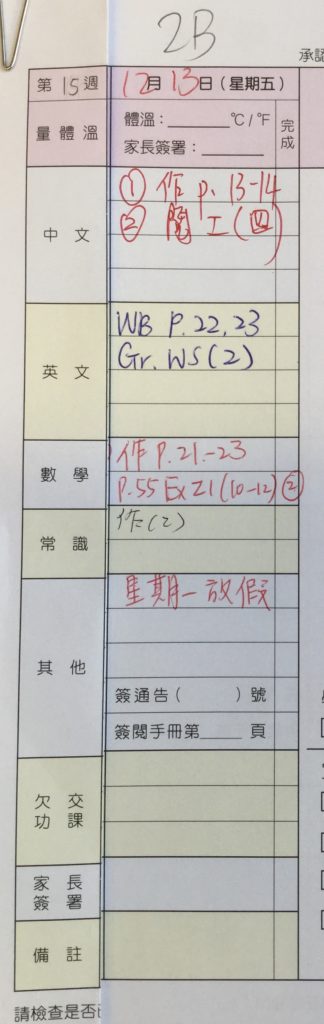 2B
承認
第15週 12月13日(星期五)
量體溫 體溫:______°C/°F 完成
家長簽署:______
中文 ① 作 p. 13-14
② 閱工(四)
英文 WB P. 22, 23
Gr. WS(2)
數學 作 P. 21-23
P.55 Ex 21 (10-12) ②
常識 作(2)
其他 星期一放假
簽通告( )號
簽閱手冊第____頁
欠交功課
家長簽署
備註
請檢查是否